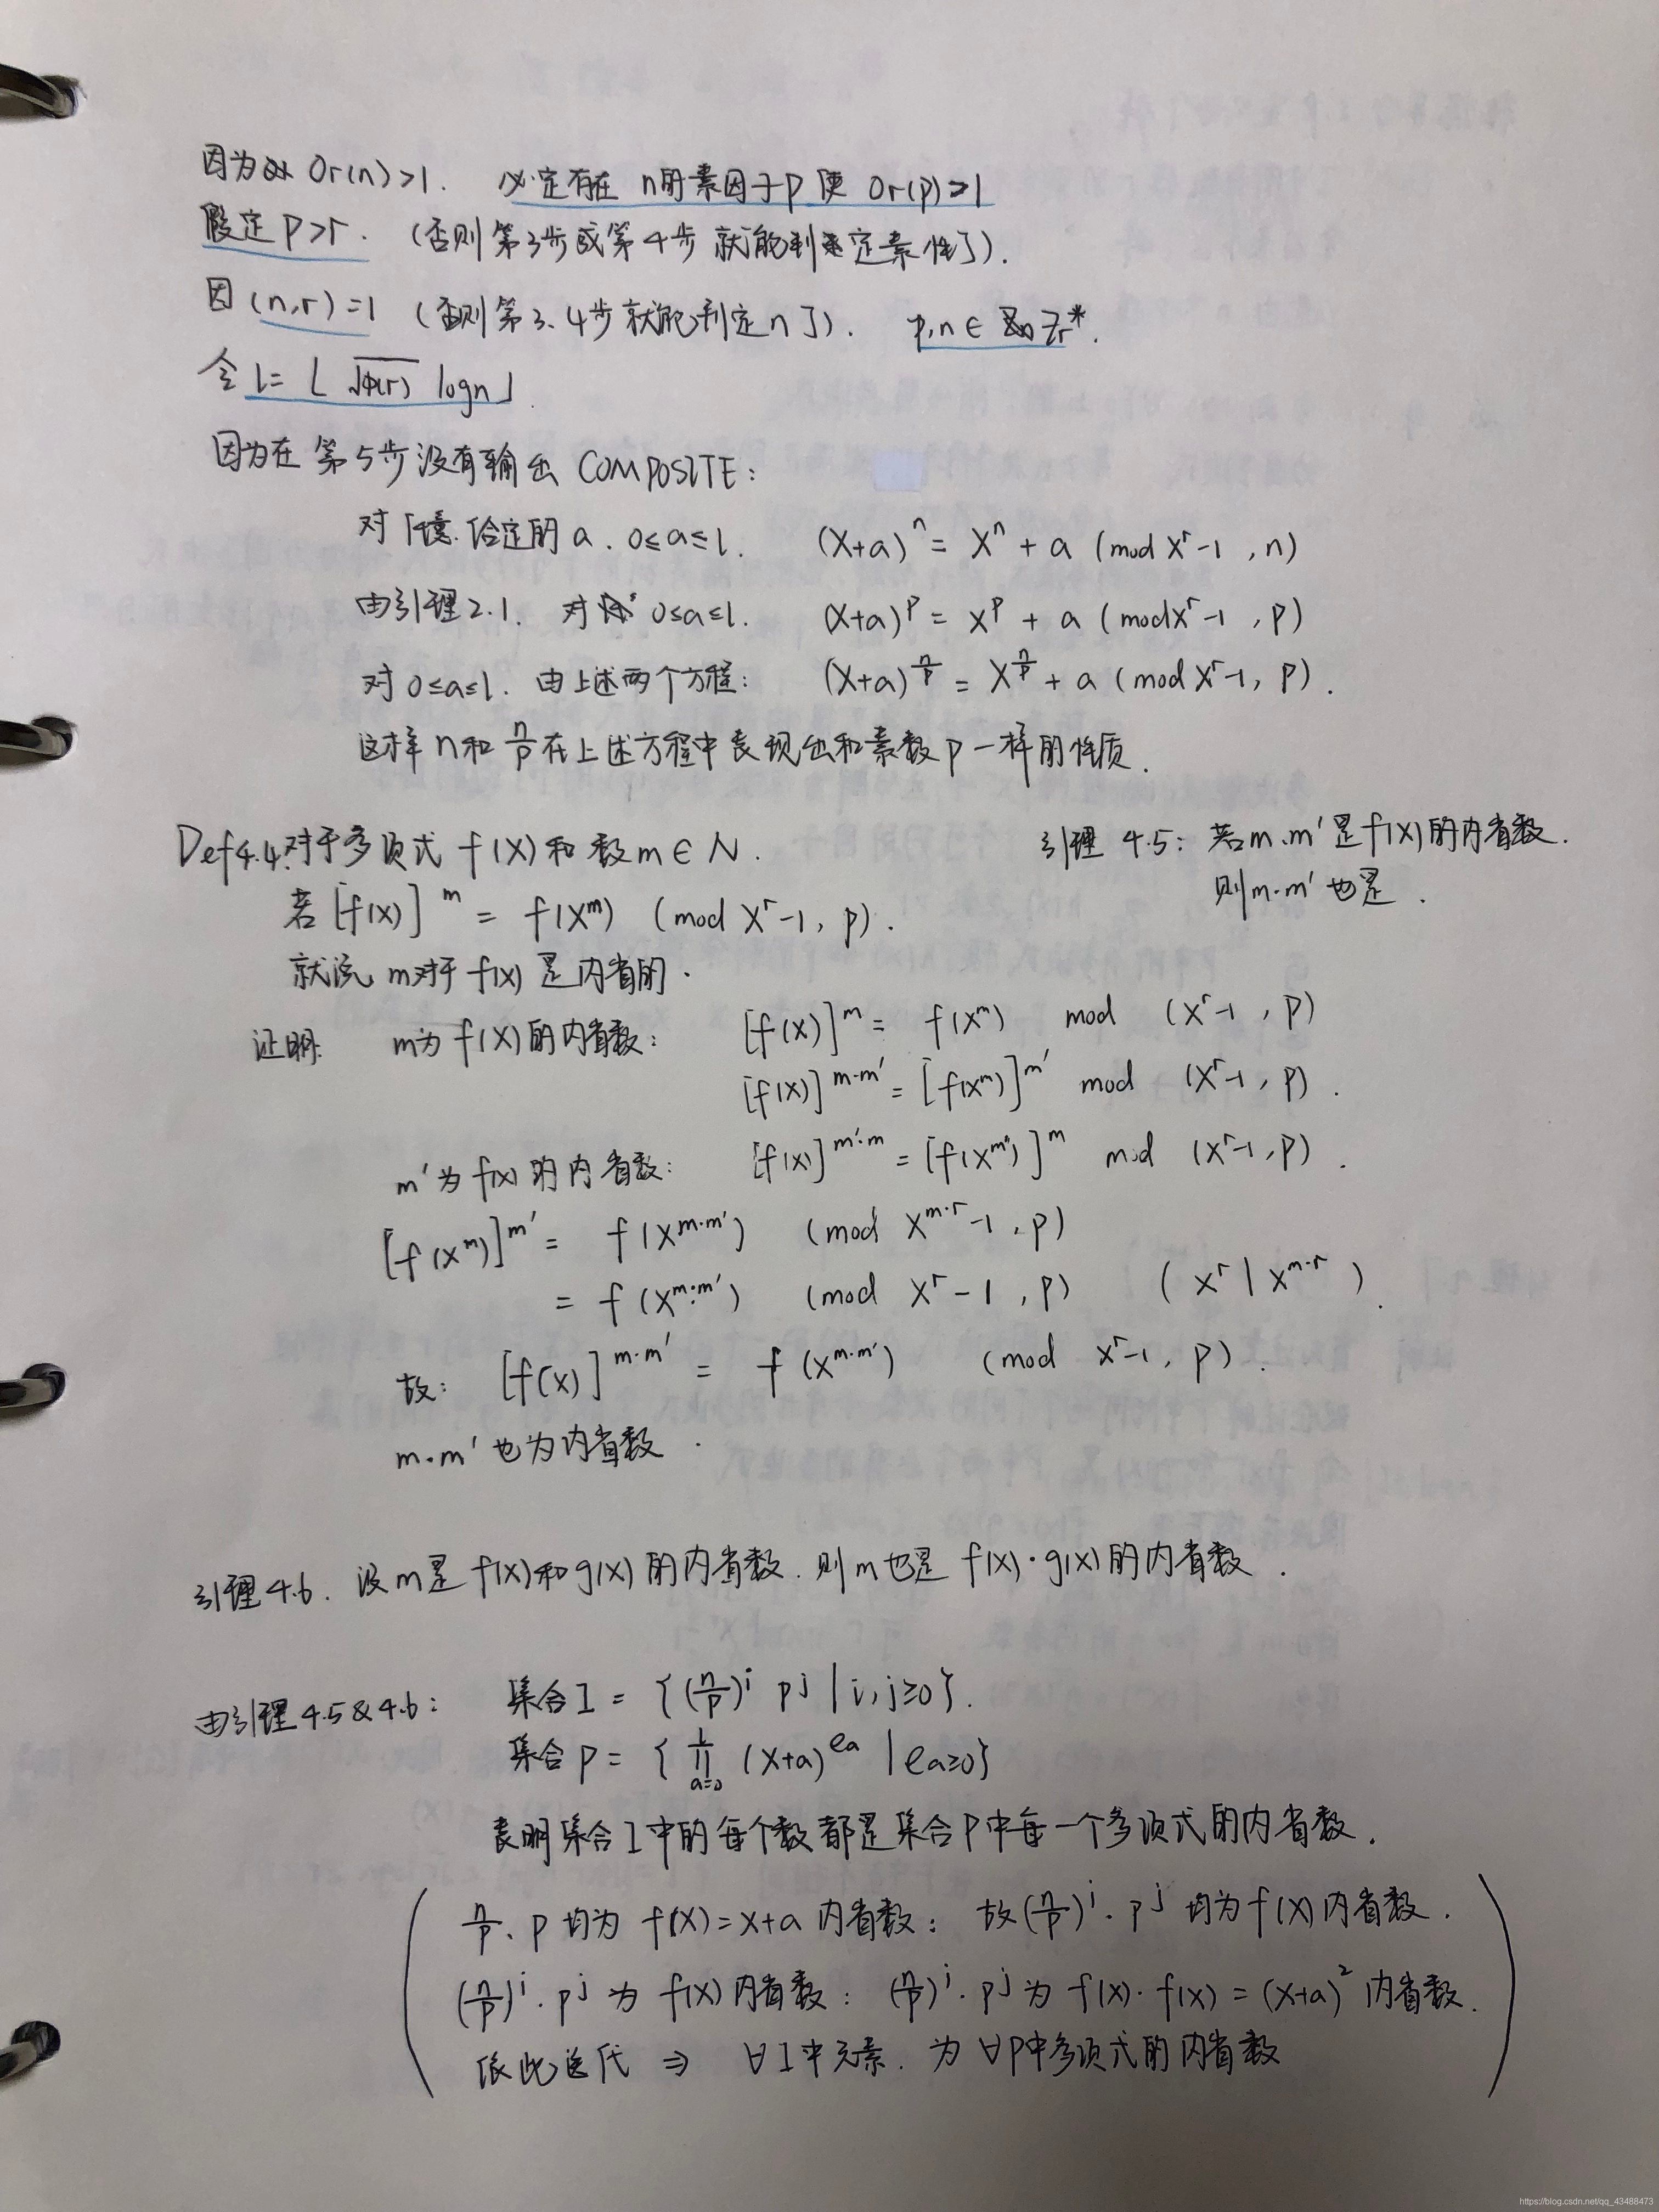 因为 Or(n)>1. 必定存在 n的素因子p 使 Or(p)>1
假定 p>r. (否则第3步或第4步就能判定素性了).
因 (n,r)=1 (否则第3、4步就能判定n了). p,n ∈ Zr*.
令 l=⌊√φ(r) logn⌋.
因为在第5步没有输出 COMPOSITE:
对任意给定的a. 0≤a≤l. (X+a)^n = X^n + a (mod X^r-1, n)
由引理2.1. 对 0≤a≤l. (X+a)^p = X^p + a (mod X^r-1, p)
对 0≤a≤l. 由上述两个方程: (X+a)^(n/p) = X^(n/p) + a (mod X^r-1, p).
这样 n和 n/p 在上述方程中表现出和素数p一样的性质.
Def4.4.对于多项式 f(X)和数m∈N.
若[f(X)]^m = f(X^m) (mod X^r-1, p).
就说 m对于f(x)是内省的.
引理 4.5: 若m、m'是f(X)的内省数.
则m·m'也是.
证明: m为f(X)的内省数: [f(X)]^m = f(X^m) mod (X^r-1, p)
[f(X)]^(m·m') = [f(X^m)]^m' mod (X^r-1, p).
m'为f(x)的内省数: [f(X)]^(m'·m) = [f(X^m')]^m mod (X^r-1, p).
[f(X^m)]^m' = f(X^(m·m')) (mod X^(m·r)-1, p)
= f(X^(m·m')) (mod X^r-1, p) (X^r | X^(m·r)).
故: [f(X)]^(m·m') = f(X^(m·m')) (mod X^r-1, p).
m·m'也为内省数.
引理4.6. 设m是f(X)和g(X)的内省数. 则m也是f(X)·g(X)的内省数.
由引理4.5&4.6: 集合I = {(n/p)^i p^j | i,j≥0}.
集合P = {∏_{a=0}^{l} (X+a)^(ea) | ea≥0}
表明集合I中的每个数都是集合P中每一个多项式的内省数.
n/p、p均为f(X)=X+a内省数: 故(n/p)^i·p^j均为f(X)内省数.
(n/p)^i·p^j为f(X)内省数: (n/p)^i·p^j为f(X)·f(X)=(X+a)^2内省数.
依此迭代 ⇒ ∀I中元素. 为∀P中多项式的内省数
https://blog.csdn.net/qq_43488473